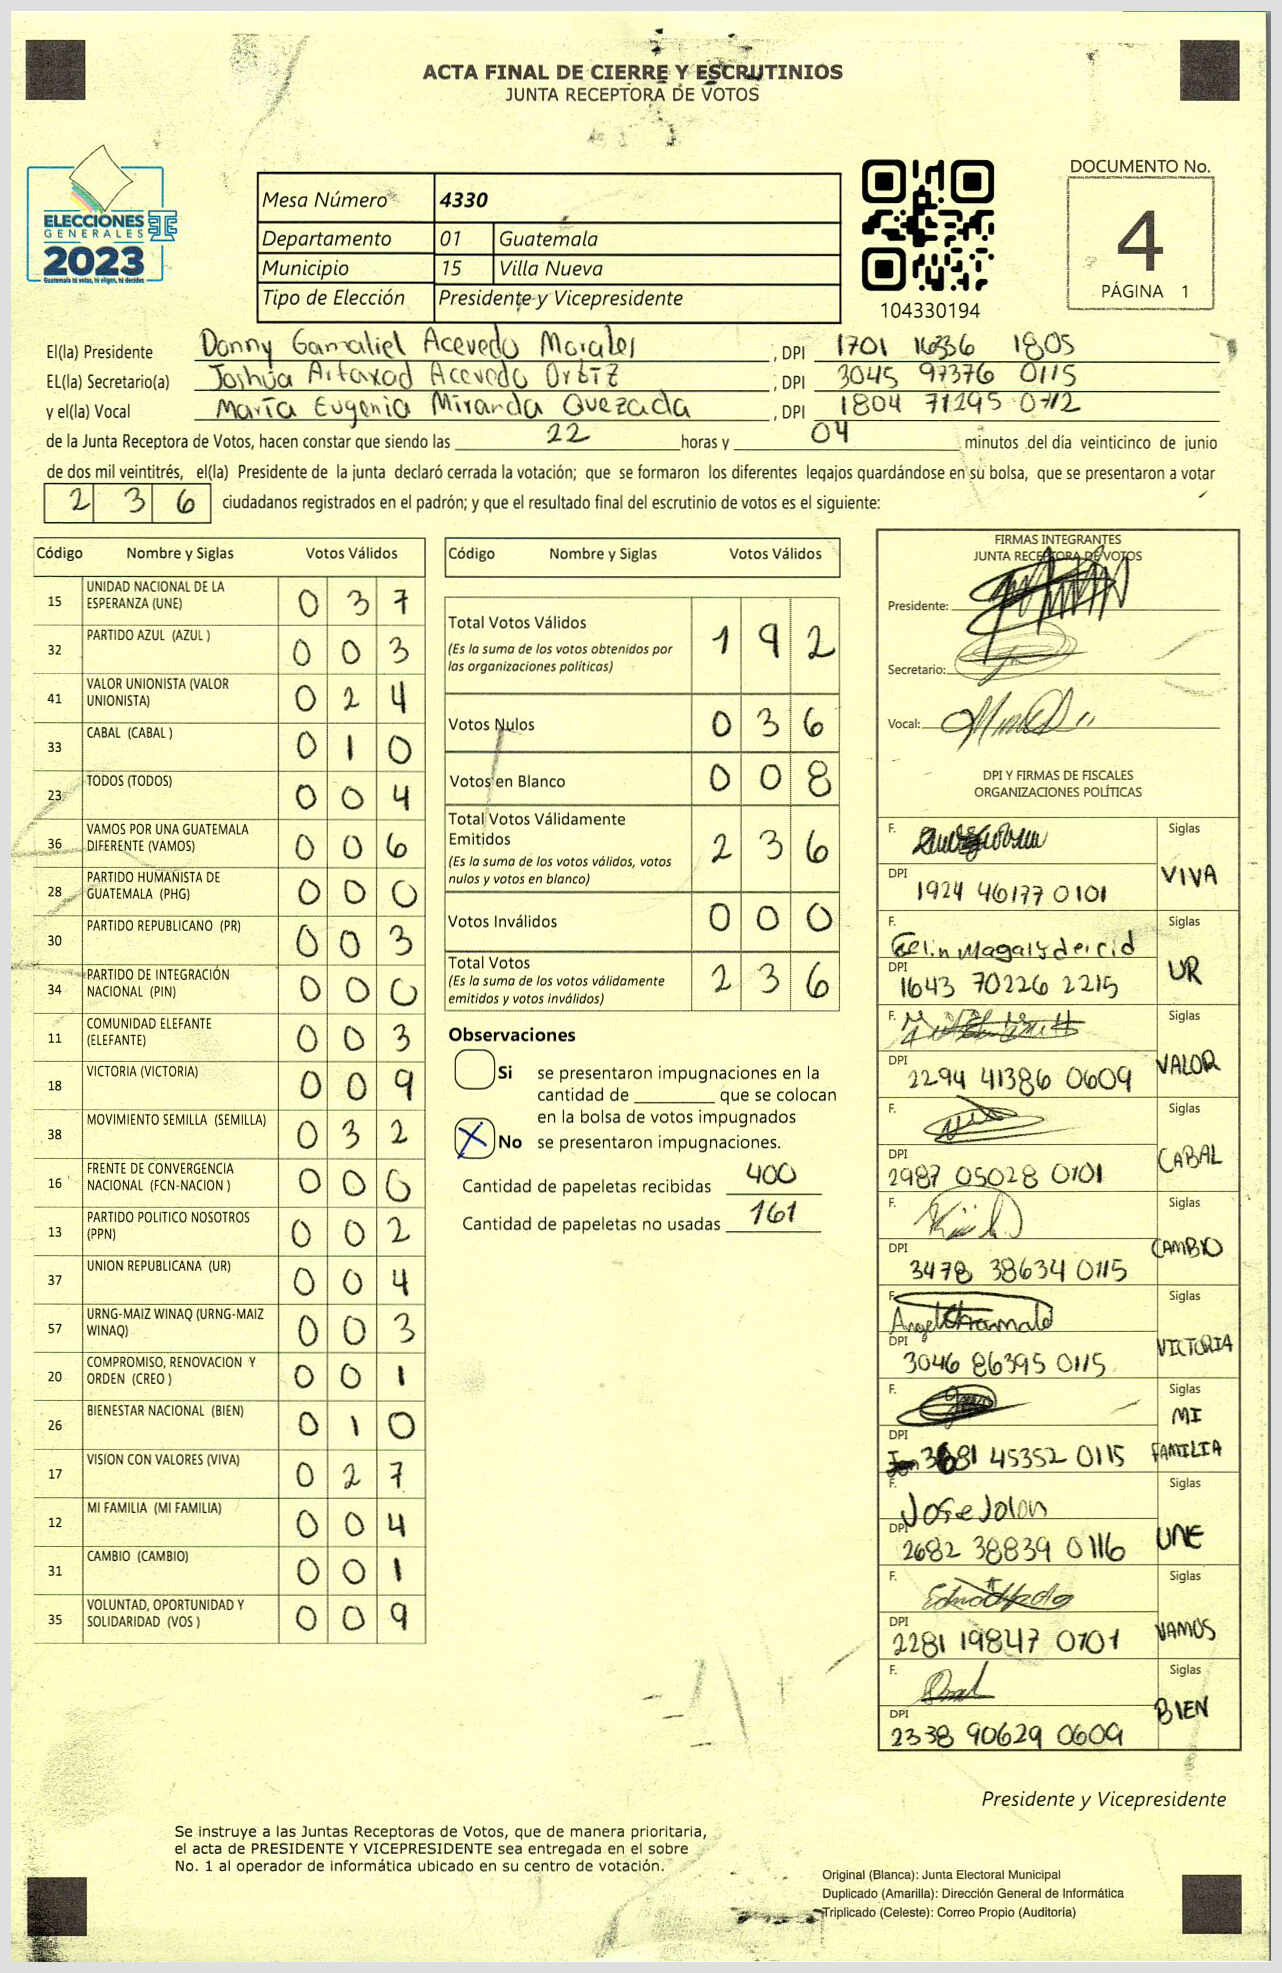 ACTA FINAL DE CIERRE Y ESCRUTINIOS
JUNTA RECEPTORA DE VOTOS
ELECCIONES
GENERALES
2023
Guatemala tú votas, tú eliges, tú decides
Mesa Número 4330
Departamento 01 Guatemala
Municipio 15 Villa Nueva
Tipo de Elección Presidente y Vicepresidente
104330194
DOCUMENTO No.
4
PÁGINA 1
El(la) Presidente Donny Gamaliel Acevedo Morales, DPI 1701 16336 1805
EL(la) Secretario(a) Joshua Artaxad Acevedo Ortiz, DPI 3045 97376 0115
y el(la) Vocal María Eugenia Miranda Quezada, DPI 1804 71295 0712
de la Junta Receptora de Votos, hacen constar que siendo las 22 horas y 04 minutos del día veinticinco de junio
de dos mil veintitrés, el(la) Presidente de la junta declaró cerrada la votación; que se formaron los diferentes legajos guardándose en su bolsa, que se presentaron a votar
2 3 6 ciudadanos registrados en el padrón; y que el resultado final del escrutinio de votos es el siguiente:
Código Nombre y Siglas Votos Válidos
15 UNIDAD NACIONAL DE LA ESPERANZA (UNE) 0 3 7
32 PARTIDO AZUL (AZUL ) 0 0 3
41 VALOR UNIONISTA (VALOR UNIONISTA) 0 2 4
33 CABAL (CABAL ) 0 1 0
23 TODOS (TODOS) 0 0 4
36 VAMOS POR UNA GUATEMALA DIFERENTE (VAMOS) 0 0 6
28 PARTIDO HUMANISTA DE GUATEMALA (PHG) 0 0 0
30 PARTIDO REPUBLICANO (PR) 0 0 3
34 PARTIDO DE INTEGRACIÓN NACIONAL (PIN) 0 0 0
11 COMUNIDAD ELEFANTE (ELEFANTE) 0 0 3
18 VICTORIA (VICTORIA) 0 0 9
38 MOVIMIENTO SEMILLA (SEMILLA) 0 3 2
16 FRENTE DE CONVERGENCIA NACIONAL (FCN-NACION ) 0 0
13 PARTIDO POLITICO NOSOTROS (PPN) 0 0 2
37 UNION REPUBLICANA (UR) 0 0 4
57 URNG-MAIZ WINAQ (URNG-MAIZ WINAQ) 0 0 3
20 COMPROMISO, RENOVACION Y ORDEN (CREO ) 0 0 1
26 BIENESTAR NACIONAL (BIEN) 0 1 0
17 VISION CON VALORES (VIVA) 0 2 7
12 MI FAMILIA (MI FAMILIA) 0 0 4
31 CAMBIO (CAMBIO) 0 0 1
35 VOLUNTAD, OPORTUNIDAD Y SOLIDARIDAD (VOS ) 0 0 9
Código Nombre y Siglas Votos Válidos
Total Votos Válidos 1 9 2
(Es la suma de los votos obtenidos por
las organizaciones políticas)
Votos Nulos 0 3 6
Votos en Blanco 0 0 8
Total Votos Válidamente
Emitidos 2 3 6
(Es la suma de los votos válidos, votos
nulos y votos en blanco)
Votos Inválidos 0 0 0
Total Votos 2 3 6
(Es la suma de los votos válidamente
emitidos y votos inválidos)
Observaciones
Si se presentaron impugnaciones en la
cantidad de ________ que se colocan
en la bolsa de votos impugnados
X No se presentaron impugnaciones.
Cantidad de papeletas recibidas 400
Cantidad de papeletas no usadas 161
FIRMAS INTEGRANTES
JUNTA RECEPTORA DE VOTOS
Presidente:
Secretario:
Vocal:
DPI Y FIRMAS DE FISCALES
ORGANIZACIONES POLÍTICAS
F. Siglas
DPI 1924 46177 0101 VIVA
F. Siglas
DPI 1643 70226 2215 UR
F. Siglas
DPI 2294 41386 0609 VALOR
F. Siglas
DPI 2987 05028 0101 CABAL
F. Siglas
DPI 3478 38634 0115 CAMBIO
F. Siglas
DPI 3046 86395 0115 VICTORIA
F. Siglas
DPI 3681 45352 0115 MI FAMILIA
F. Jose Jolon Siglas
DPI 2682 38839 0116 UNE
F. Siglas
DPI 2281 19847 0101 VAMOS
F. Siglas
DPI 2338 90629 0609 BIEN
Presidente y Vicepresidente
Se instruye a las Juntas Receptoras de Votos, que de manera prioritaria,
el acta de PRESIDENTE Y VICEPRESIDENTE sea entregada en el sobre
No. 1 al operador de informática ubicado en su centro de votación.
Original (Blanca): Junta Electoral Municipal
Duplicado (Amarilla): Dirección General de Informática
Triplicado (Celeste): Correo Propio (Auditoría)